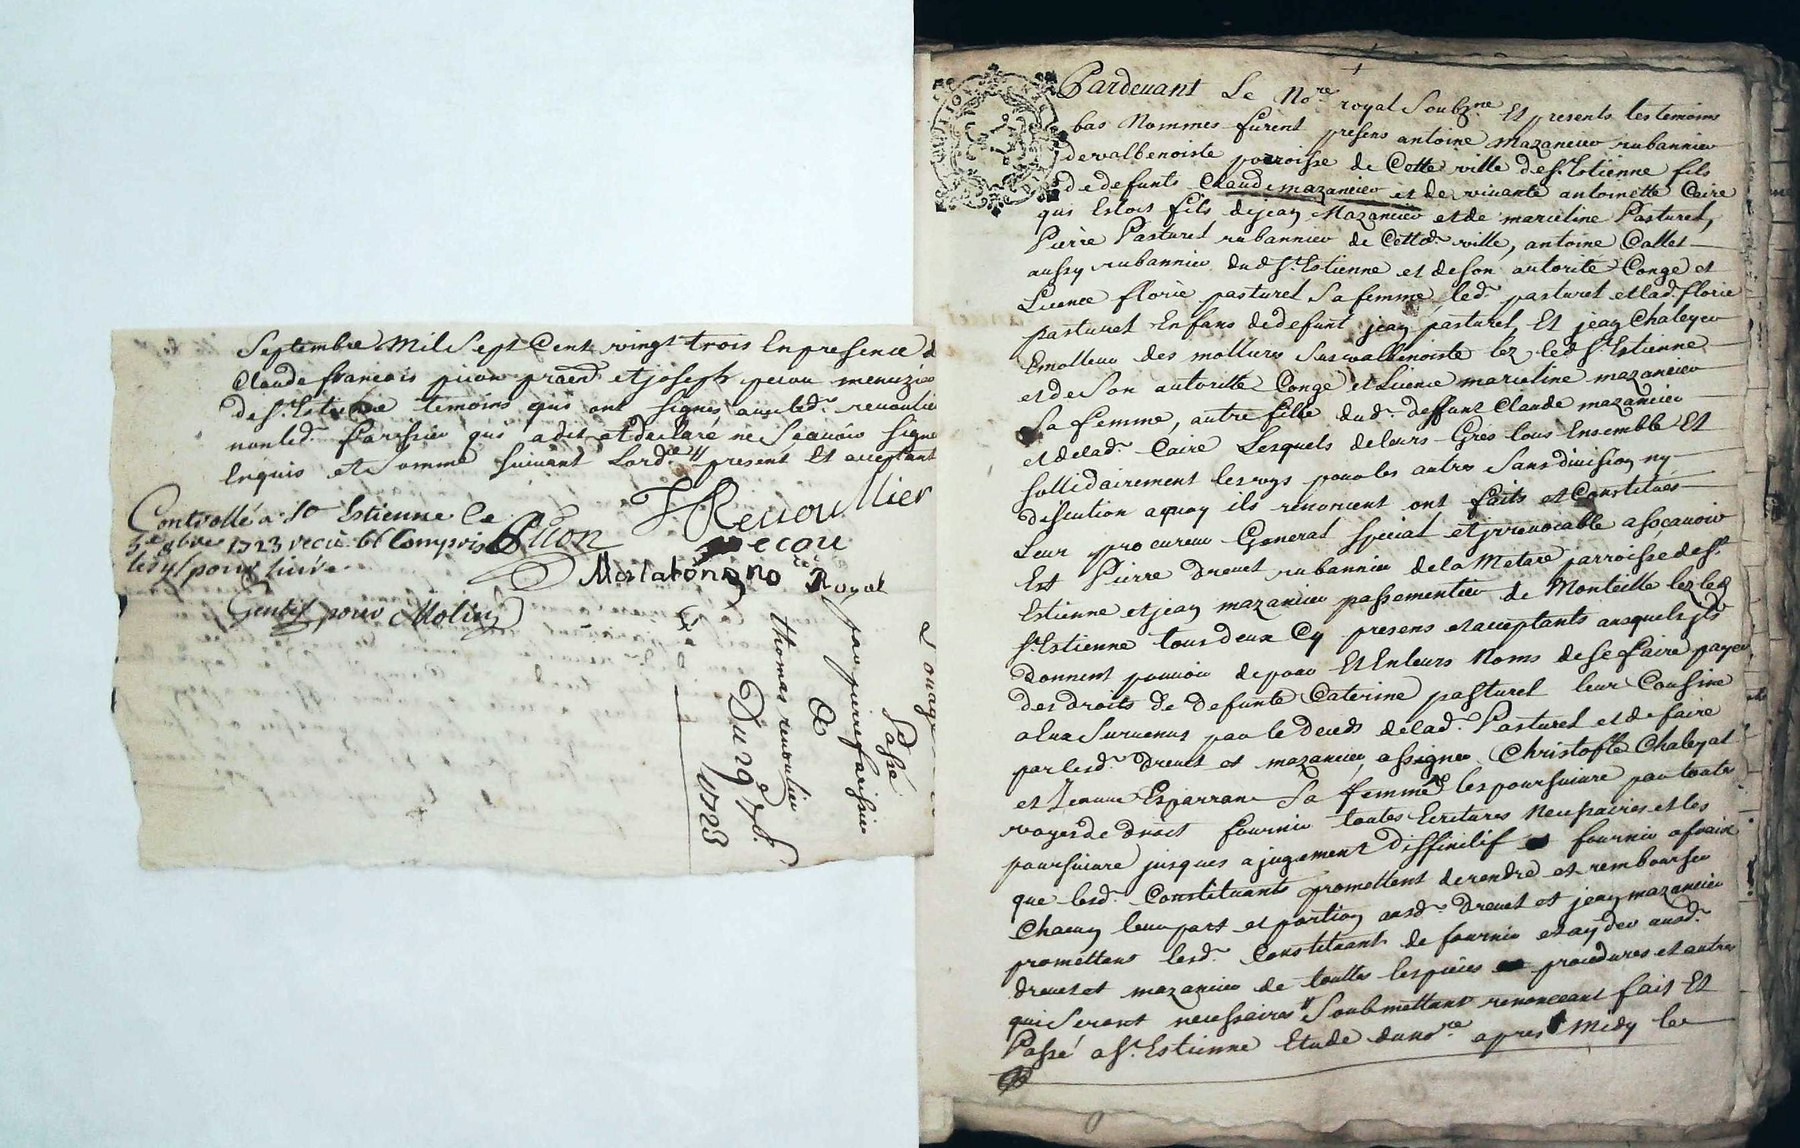 Septembre Mil Sept Cent vingt trois En presence d
Claude francois pion praend et joseph pecou menuzier
de St. Estienne temoins qui ont signés avec led. reuoulier
non led. farissier qui a dit et declaré ne Scauoir signe
Enquis et Sommé suivant Lord.ce present Et acceptant
Controllé a St Estienne le
1723 recu 66 Compris
les pour liure
Pion
Reuoullier
pecou
No.re Royal
Gentil pour Molin
Louage
Passé
par pierre farissier
A
thomas reuoulier
Du 29e 7b.
1723
Pardeuant Le No.re royal Soubz.ne Et presents les temoins
bas Nommes furent presens antoine Mazancieu rubannier
de valbenoiste parroisse de Cette ville de St. Estienne fils
de defunts Claude mazancieu et de viuante antoinette Caire
qui Estoit fils de jean Mazancieu et de marceline Pasturel,
Pierre Pasturel rubannier de Cetted. ville, antoine Callet
aussy rubannier dud St. Estienne et de son autorité Congé et
Licence florie pasturel Sa femme led. pasturel et lad. florie
pasturel Enfans de defunt jean pasturel, Et jean Chaleyer
Emolleur des mollures Sur valbenoiste lez led St. Estienne
et de Son autorité Congé et Licence marceline mazancieu
Sa femme, autre fille dud. deffunt Claude mazancieu
et de lad. Caire Lesquels de leurs Grés tous Ensemble Et
sollidairement les ungs pour les autres Sans diuision ny
discution a quoy ils renoncent ont faits et Constitués
Leur procureur General special et irreuocable a scauoir
Est Pierre Dreuet rubannier de la Metare parroisse de St.
Estienne et jean mazancieu passementier de Monteille lez led
St. Estienne tous deux Cy presens et acceptants ausquels ils
donnent pouuoir de pour Et En leurs Noms de se faire payer
des droits de defunte Caterine pasturel leur Cousine
a Eux Suruenus par le deceds de lad. Pasturel et de faire
par lesd. Dreuet et mazancieu, assigner Christofle Chaleyat
et Esparran Sa femme les poursuiure par toute
voyes de droit fournir toutes Ecritures Necessaires et les
poursuiure jusques a jugement diffinitif fournir a frais
que lesd. Constituants promettent de rendre et rembourser
Chacun leur part et portion ausd. Dreuet et jean mazancieu
promettant lesd. Constituant de fournir et ayder ausd.
dreuet et mazancieu de touttes les pieces procedures et autres
qui Seront necessaires Soubmettant renonceant fait Et
Passé a St. Estienne Etude du no.re apres Midy le